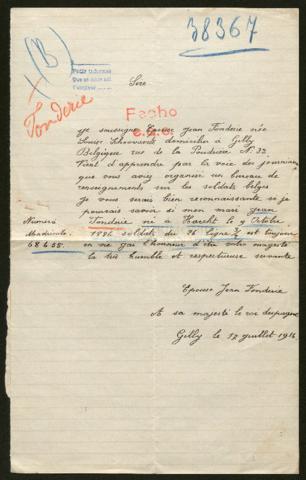 38367
(B)
Tonderie
Sire
Fecho
je soussigné Epouse Jean Tonderie née
Louise domicilier à Gilly
Belgique rue de la Poudrière N° 35
Vient d'apprendre par la voie des journaux
que vous aviez organiser un bureau de
renseignements sur les soldats belges
je vous serais bien reconnaissante si je
pourrais savoir si mon mari Jean
Numéro Tonderie né à Harcht le 9 Octobre
Matricule 1896 soldat du 26 ligne est toujour
68.4.55. en vie j'ai l'honneur d'être votre majesté
la très humble et respectueuse servante
Epouse Jean Tonderie
A sa majesté le roi despagne
Gilly le 12 juillet 1916